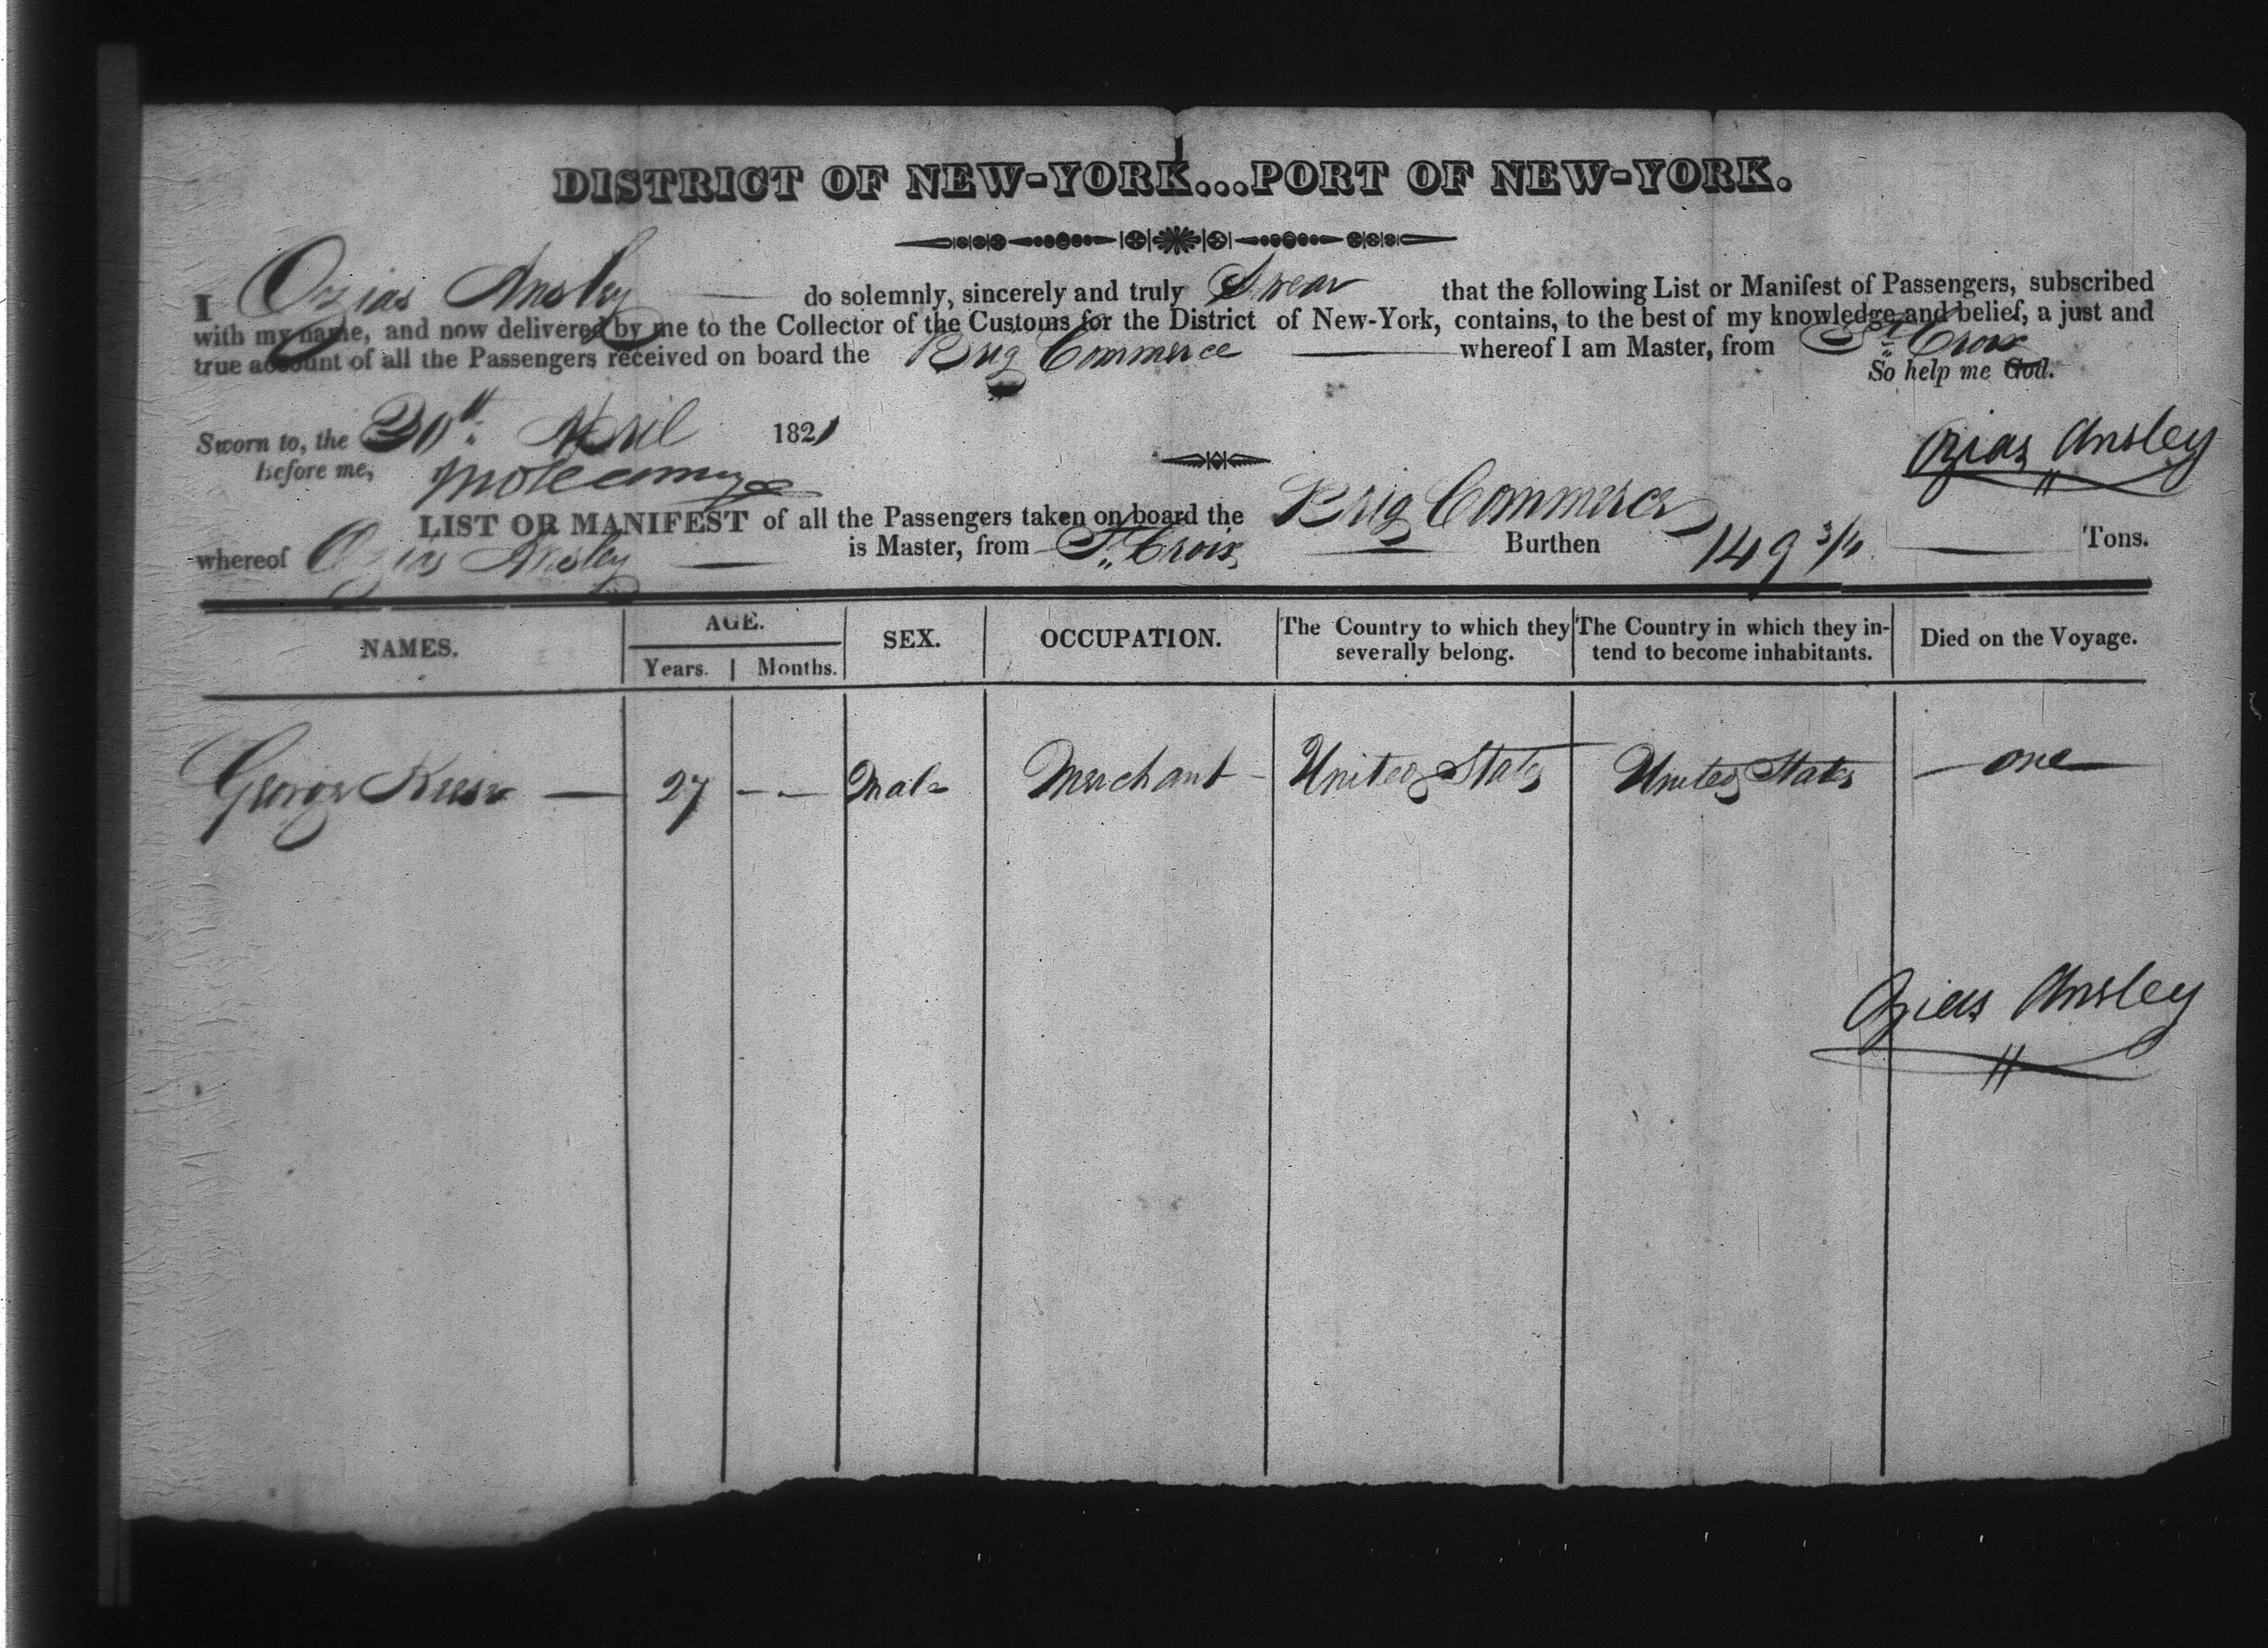 DISTRICT OF NEW-YORK...PORT OF NEW-YORK.
I Ozias Ansley do solemnly, sincerely and truly Swear that the following List or Manifest of Passengers, subscribed
with my name, and now delivered by me to the Collector of the Customs for the District of New-York, contains, to the best of my knowledge and belief, a just and
true account of all the Passengers received on board the Brig Commerce whereof I am Master, from St. Croix
So help me God.
Sworn to, the 30th April 1821
before me,
Ozias Ansley
LIST OR MANIFEST of all the Passengers taken on board the Brig Commerce
whereof Ozias Ansley is Master, from St. Croix Burthen 149 3/4 Tons.
NAMES. AGE. SEX. OCCUPATION. The Country to which they severally belong. The Country in which they intend to become inhabitants. Died on the Voyage.
Years. Months.
George 27 Male Merchant United States United States one
Ozias Ansley